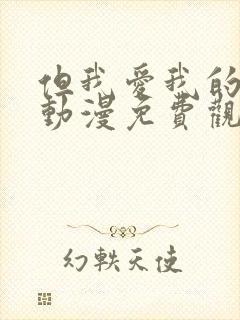 但我愛我的
動漫免費觀
幻軼天使